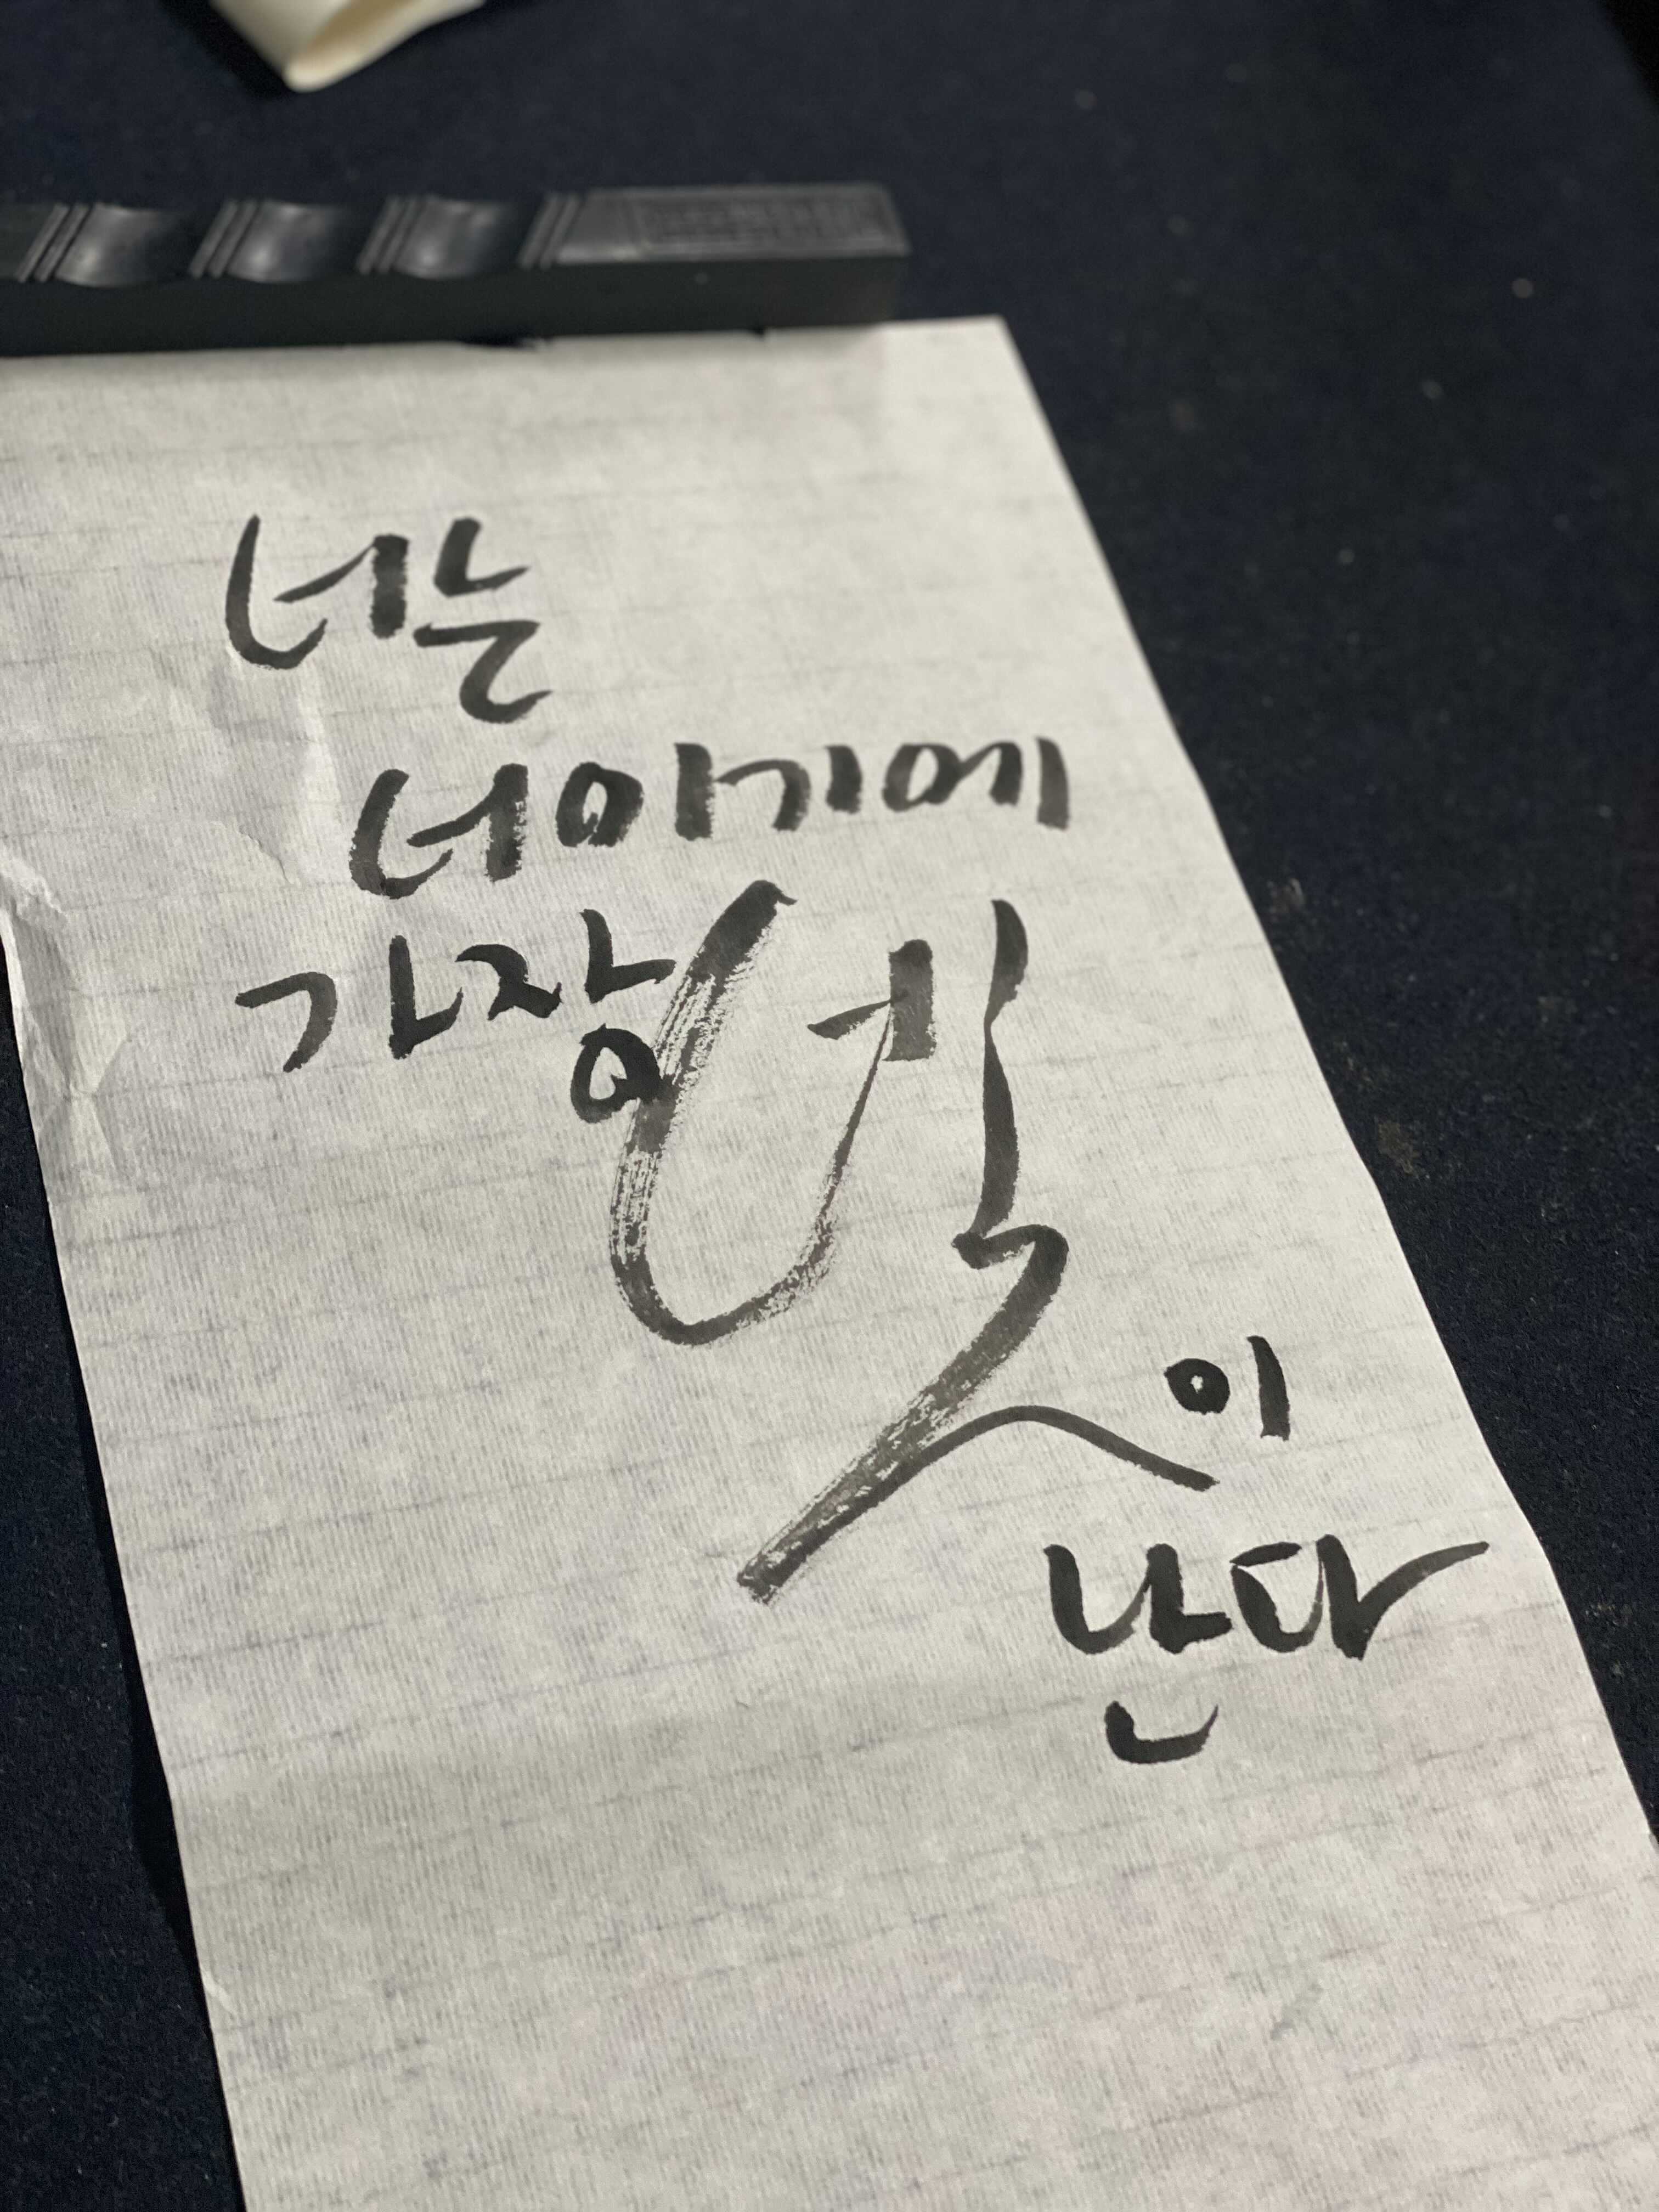 너는
너이기에
가장 빛이
난다